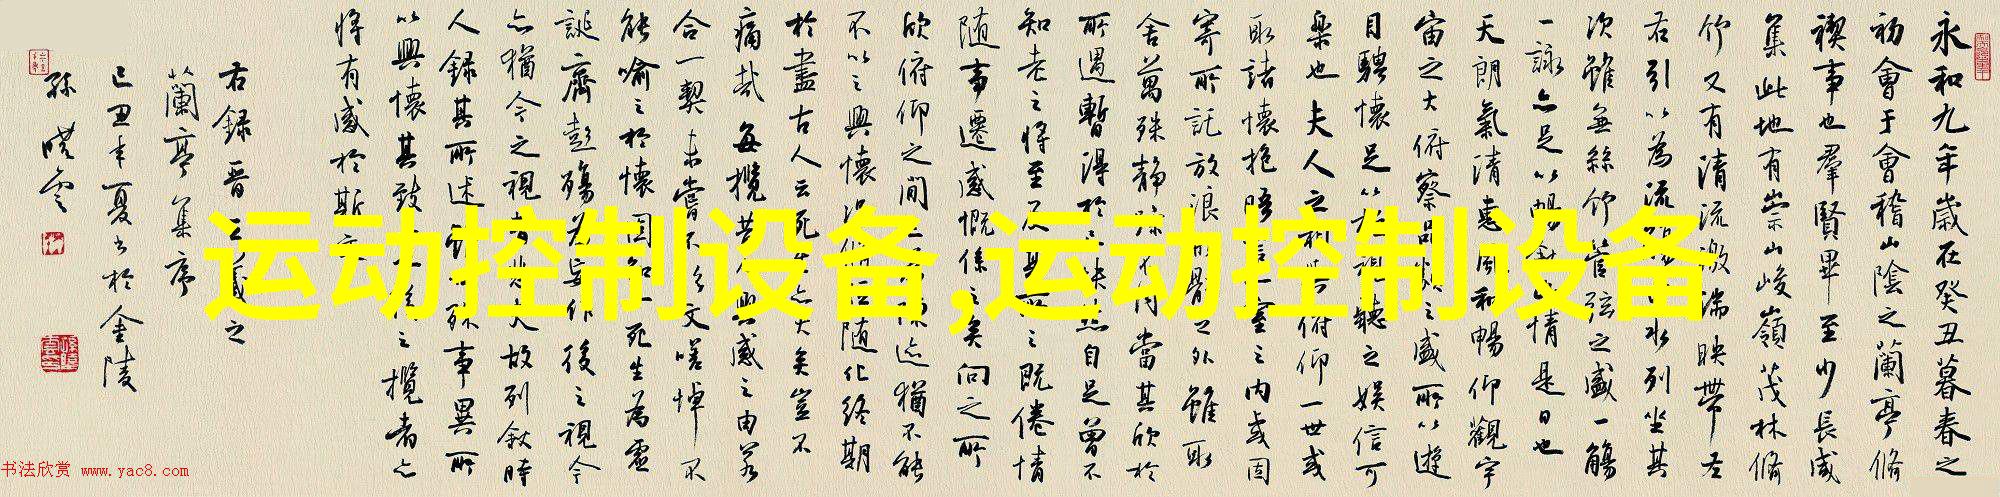 永和九年歲在癸丑暮春之
初會于會稽山陰之蘭亭脩
禊事也羣賢畢至少長咸
集此地有崇山峻嶺茂林脩
竹又有清流激湍映帶左
右引以為流水列坐其
次雖無絲竹管弦之盛一觴
一詠亦足以暢情是日也
天朗氣清惠風和暢仰觀宇
宙之大俯察品之盛所以遊
目騁懷足以聽之娛信可
樂也夫人之相俯仰一世或
取諸懷抱悟言一室之內或因
寄所託放浪形骸之外雖取
舍萬殊靜躁不同當其欣於
所遇暫得於己快然自足曾不
知老之將至及其所之既倦情
隨事遷感慨係之矣向之所
欣俯仰之間陳迹猶不能
不以之興懷況隨化終期
於盡古人云死生亦大矣豈不
痛哉每攬昔人興感之由若
合一契未嘗不文嗟悼不
能喻之於懷固知一死生為虛
誕齊彭殤為妄作後之視今
亦猶今之視昔悲夫故列敘時
人錄其所述雖殊事異所
以興懷其致一也後之攬者亦
將有感於斯文
右錄晉王羲之
蘭亭集序
己丑年夏書於金陵
孫曉雲
运动控制设备,运动控制设备
书法欣赏 www.yac8.com